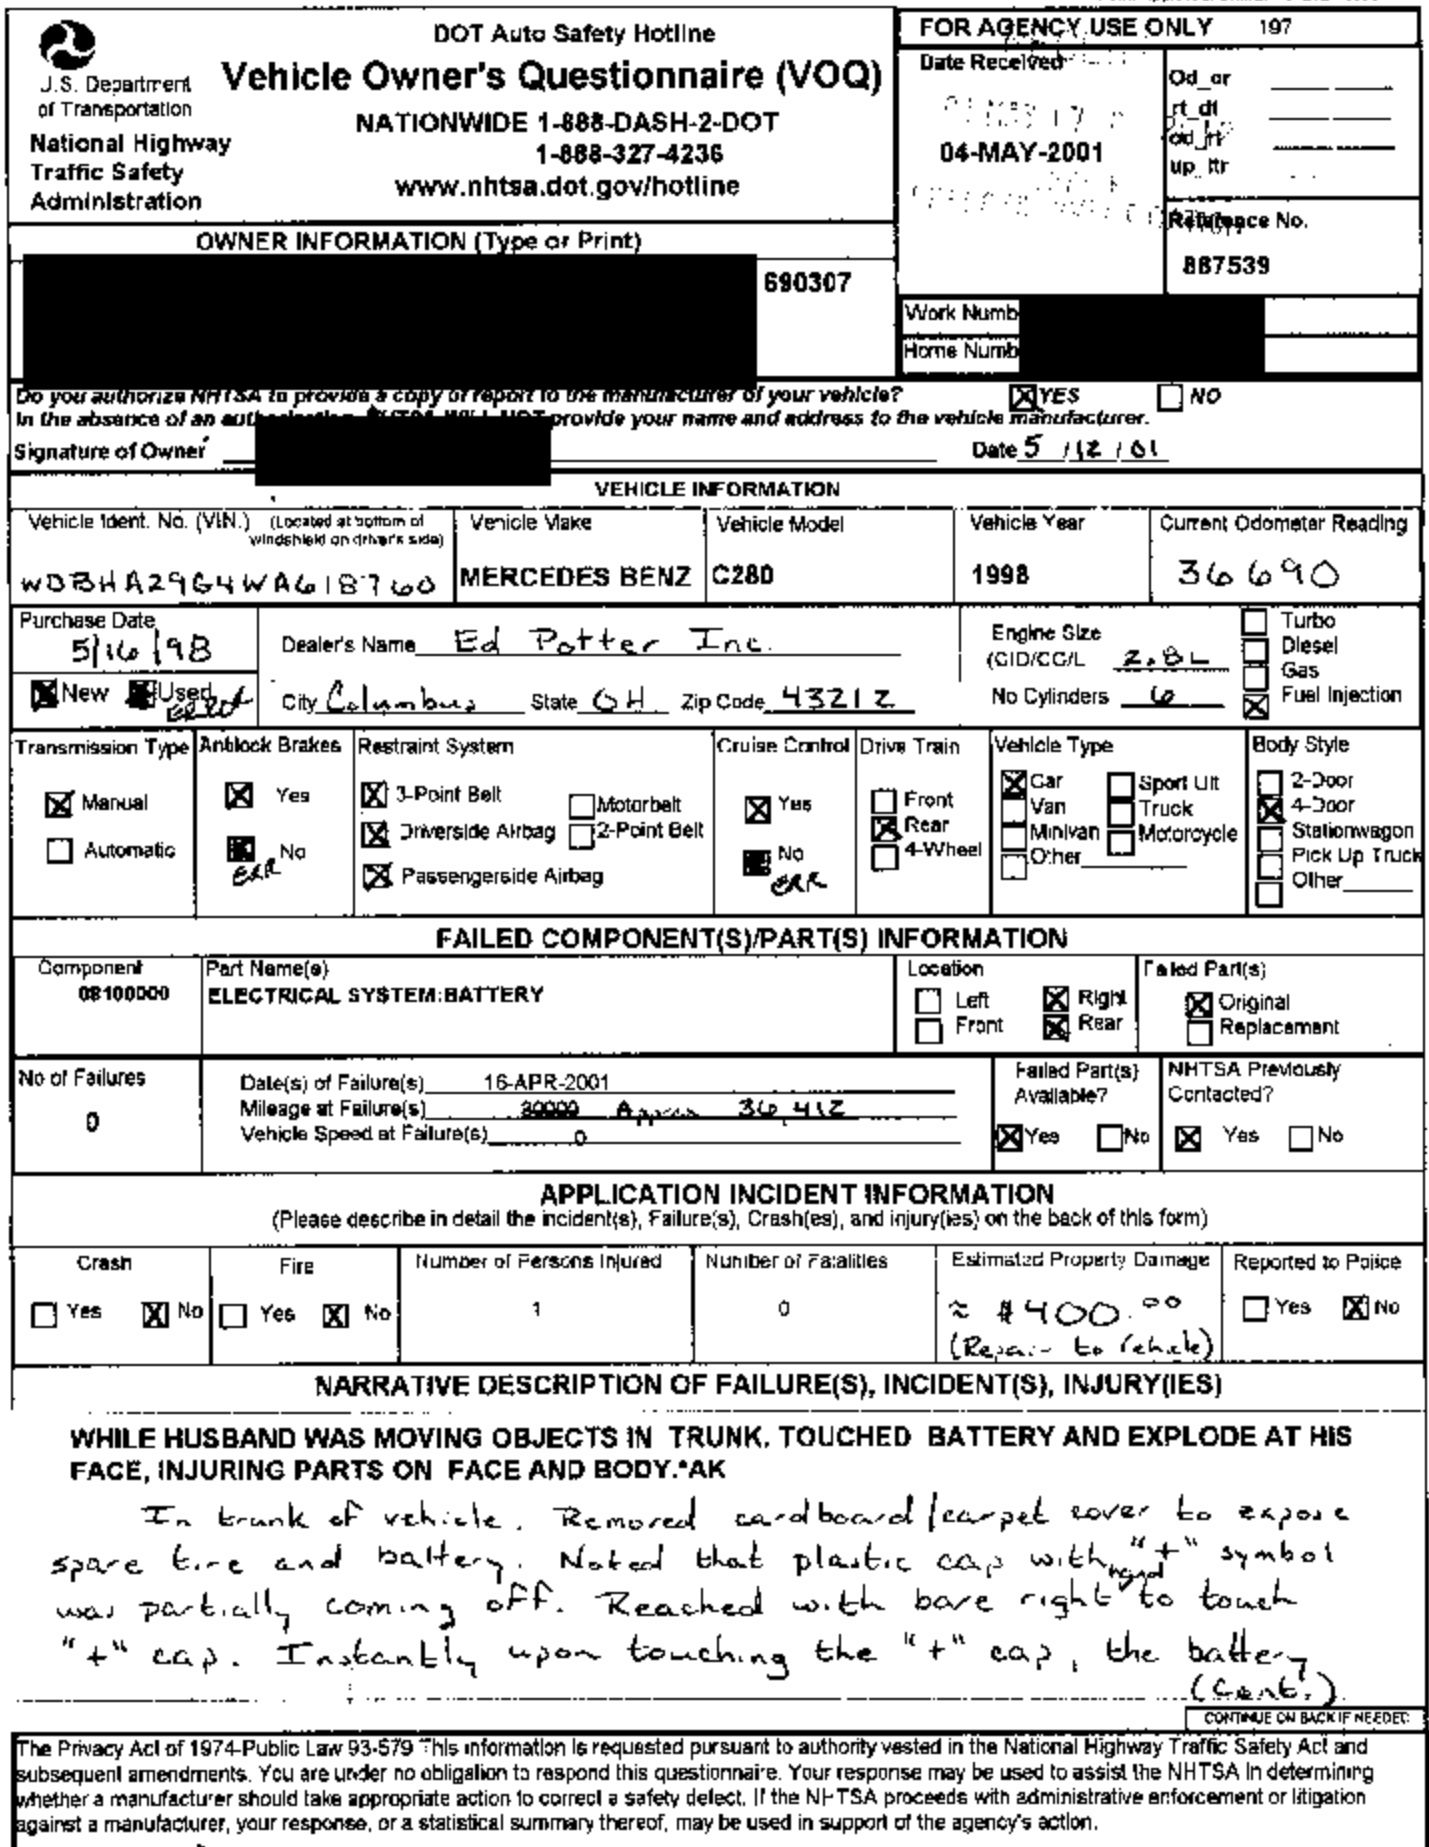 DOT Auto Safety Hotline
Vehicle Owner's Questionnaire (VOQ)
NATIONWIDE 1-888-DASH-2-DOT
1-888-327-4236
www.nhtsa.dot.gov/hotline
U.S. Department
of Transportation
National Highway
Traffic Safety
Administration
FOR AGENCY USE ONLY 197
Date Received
04-MAY-2001
Od_or
rt_dt
od_rt
up_ltr
Reference No.
887539
OWNER INFORMATION (Type or Print)
690307
Work Numb
Home Numb
Do you authorize NHTSA to provide a copy of report to the manufacturer of your vehicle? YES NO
In the absence of an provide your name and address to the vehicle manufacturer.
Signature of Owner Date 5 / 12 / 01
VEHICLE INFORMATION
Vehicle Ident. No. (VIN.) (Located at bottom of windshield on driver's side)
WDBHA29G4WA618760
Vehicle Make
MERCEDES BENZ
Vehicle Model
C280
Vehicle Year
1998
Current Odometer Reading
36690
Purchase Date
5/16/98
New Used
error
Dealer's Name Ed Potter Inc.
City Columbus State OH Zip Code 43212
Engine Size
(CID/CC/L 2.8L
No Cylinders 6
Turbo
Diesel
Gas
Fuel Injection
Transmission Type
Manual
Automatic
Antilock Brakes
Yes
No
ERR
Restraint System
3-Point Belt
Driverside Airbag
Passengerside Airbag
Motorbelt
2-Point Belt
Cruise Control
Yes
No
ERR
Drive Train
Front
Rear
4-Wheel
Vehicle Type
Car
Van
Minivan
Other
Sport Ult
Truck
Motorcycle
Body Style
2-Door
4-Door
Stationwagon
Pick Up Truck
Other
FAILED COMPONENT(S)/PART(S) INFORMATION
Component
08100000
Part Name(s)
ELECTRICAL SYSTEM:BATTERY
Location
Left Right
Front Rear
Failed Part(s)
Original
Replacement
No of Failures
0
Date(s) of Failure(s) 16-APR-2001
Mileage at Failure(s) 30000 Approx 36,412
Vehicle Speed at Failure(s) 0
Failed Part(s)
Available?
Yes No
NHTSA Previously
Contacted?
Yes No
APPLICATION INCIDENT INFORMATION
(Please describe in detail the incident(s), Failure(s), Crash(es), and injury(ies) on the back of this form)
Crash
Yes No
Fire
Yes No
Number of Persons Injured
1
Number of Fatalities
0
Estimated Property Damage
≈ $400.00
(Repair to Vehicle)
Reported to Police
Yes No
NARRATIVE DESCRIPTION OF FAILURE(S), INCIDENT(S), INJURY(IES)
WHILE HUSBAND WAS MOVING OBJECTS IN TRUNK, TOUCHED BATTERY AND EXPLODE AT HIS
FACE, INJURING PARTS ON FACE AND BODY.*AK
In trunk of vehicle. Removed cardboard/carpet cover to expose
spare tire and battery. Noted that plastic cap with "+" symbol
was partially coming off. Reached with bare right hand to touch
"+" cap. Instantly upon touching the "+" cap, the battery
(Cont.)
CONTINUE ON BACK IF NEEDED
The Privacy Act of 1974-Public Law 93-579 This information is requested pursuant to authority vested in the National Highway Traffic Safety Act and
subsequent amendments. You are under no obligation to respond this questionnaire. Your response may be used to assist the NHTSA in determining
whether a manufacturer should take appropriate action to correct a safety defect. If the NHTSA proceeds with administrative enforcement or litigation
against a manufacturer, your response, or a statistical summary thereof, may be used in support of the agency's action.